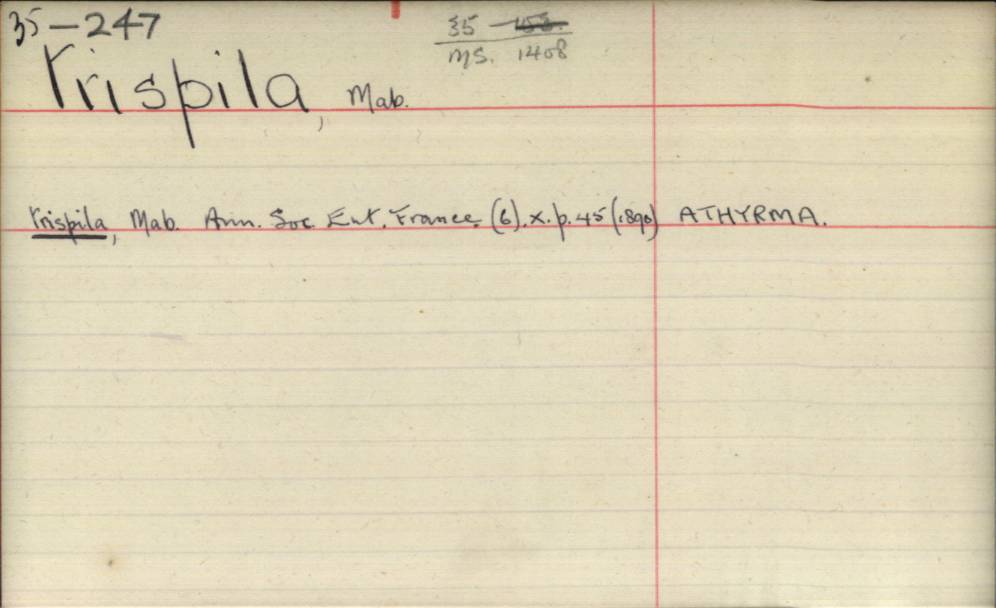 35-247
35
MS. 1408
Trispila, Mab.
trispila, Mab. Ann. Soc. Ent. France. (6). X. p. 45 (1890) ATHYRMA.